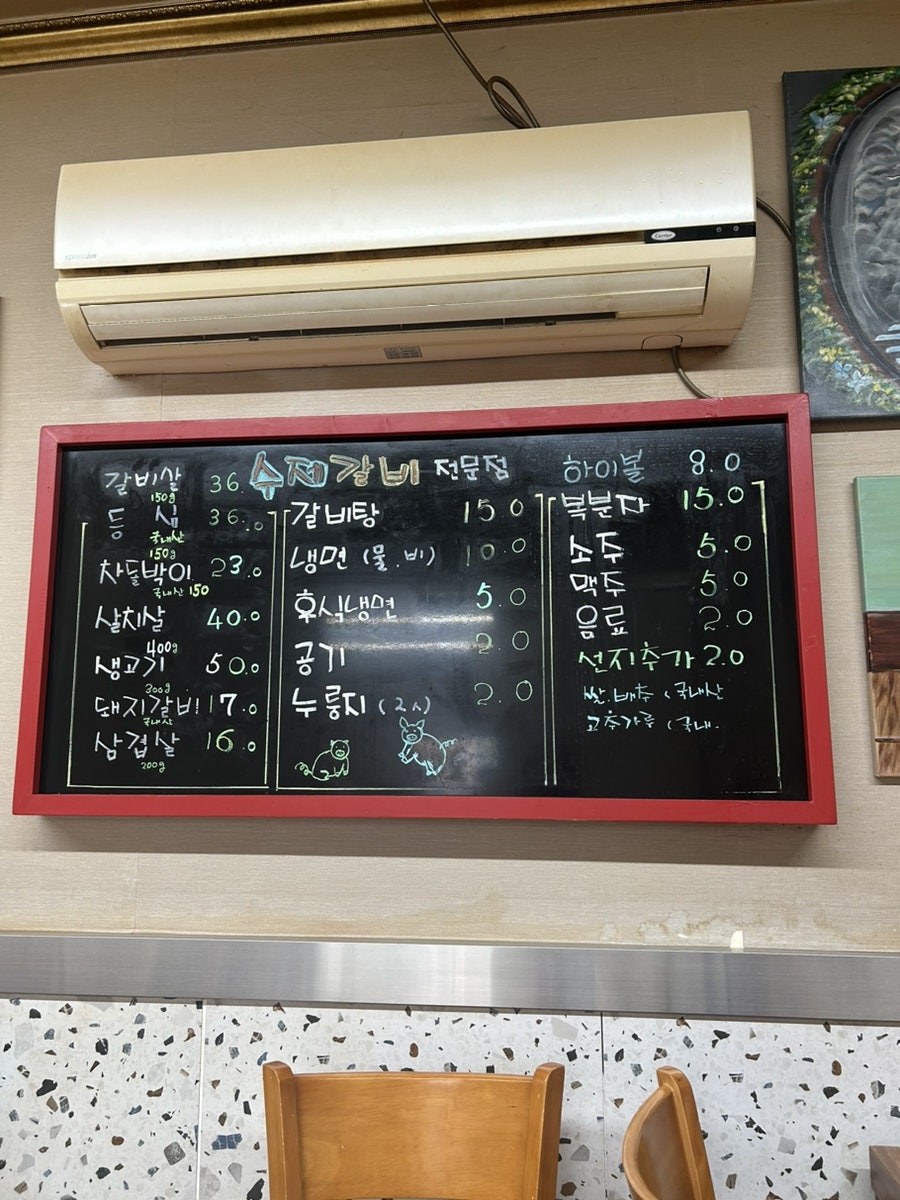 Carrier
수제갈비 전문점
갈비살 36.
150g
등 심 36.0
국내산
150g
차돌박이 23.0
국내산 150
살치살 40.0
400g
생고기 50.0
300g
돼지갈비 17.0
국내산
삼겹살 16.0
200g
갈비탕 15.0
냉면 (물.비) 10.0
후식냉면 5.0
공기 2.0
누룽지 (2人) 2.0
하이볼 8.0
복분자 15.0
소주 5.0
맥주 5.0
음료 2.0
선지추가 2.0
쌀.배추 (국내산
고추가루 (국내.